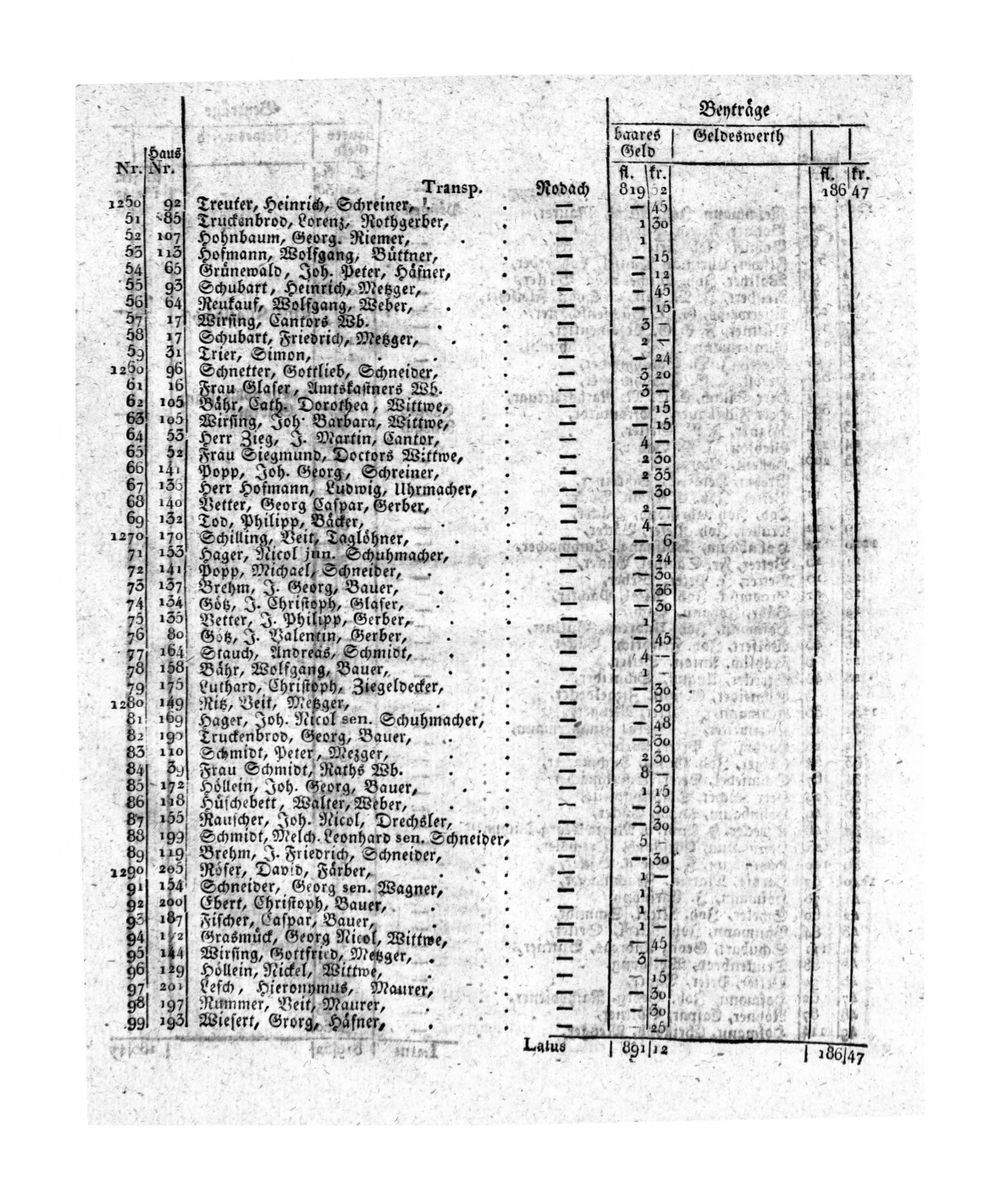 Beyträge
baares Geld | Geldeswerth
Nr. | Haus Nr. | fl. | kr. | fl. | kr.
Transp. Rodach 819 52 186 47
1250 92 Treuter, Heinrich, Schreiner, — — 45
51 85 Truckenbrod, Lorenz, Rothgerber, — 1 30
52 107 Hohnbaum, Georg. Riemer, — 1 —
53 113 Hofmann, Wolfgang, Büttner, — — 15
54 65 Grünewald, Joh. Peter, Häfner, — — 12
55 93 Schubart, Heinrich, Metzger, — — 45
56 64 Neukauf, Wolfgang, Weber, — — 15
57 17 Wirsing, Cantors Wb. — 3 —
58 17 Schubart, Friedrich, Metzger, — 2 —
59 31 Trier, Simon, — — 24
1260 96 Schnetter, Gottlieb, Schneider, — 3 20
61 16 Frau Glaser, Amtskastners Wb. — 3 —
62 105 Bähr, Cath. Dorothea, Wittwe, — — 15
63 105 Wirsing, Joh. Barbara, Wittwe, — — 15
64 53 Herr Zieg, J. Martin, Cantor, — 4 —
65 52 Frau Siegmund, Doctors Wittwe, — 2 30
66 141 Popp, Joh. Georg, Schreiner, — 2 35
67 136 Herr Hofmann, Ludwig, Uhrmacher, — — 30
68 140 Vetter, Georg Caspar, Gerber, — 2 —
69 132 Tod, Philipp, Bäcker, — 4 —
1270 170 Schilling, Veit, Taglöhner, — — 6
71 153 Hager, Nicol jun. Schuhmacher, — — 24
72 141 Popp, Michael, Schneider, — — 30
73 137 Brehm, J. Georg, Bauer, — — 36
74 134 Götz, J. Christoph, Glaser, — — 30
75 135 Vetter, J. Philipp, Gerber, — 1 —
76 80 Götz, J. Valentin, Gerber, — — 45
77 164 Stauch, Andreas, Schmidt, — 4 —
78 158 Bähr, Wolfgang, Bauer, — 1 —
79 175 Luthard, Christoph, Ziegeldecker, — — 30
1280 149 Ritz, Veit, Metzger, — — 30
81 169 Hager, Joh. Nicol sen. Schuhmacher, — — 48
82 Truckenbrod, Georg, Bauer, — — 30
83 110 Schmidt, Peter, Mezger, — 2 30
84 39 Frau Schmidt, Raths Wb. — 8 —
85 172 Höllein, Joh. Georg, Bauer, — 1 15
86 118 Hüschebett, Walter, Weber, — — 30
87 155 Rauscher, Joh. Nicol, Drechsler, — — 30
88 199 Schmidt, Melch. Leonhard sen. Schneider, — 5 —
89 119 Brehm, J. Friedrich, Schneider, — — 30
1290 205 Röser, David, Färber, — 1 —
91 154 Schneider, Georg sen. Wagner, — 1 —
92 200 Ebert, Christoph, Bauer, — 1 —
93 187 Fischer, Caspar, Bauer, — 1 —
94 Grasmück, Georg Nicol, Wittwe, — — 45
95 144 Wirsing, Gottfried, Metzger, — 3 —
96 129 Höllein, Nickel, Wittwe, — — 15
97 201 Lesch, Hieronymus, Maurer, — — 30
98 197 Rummer, Veit, Maurer, — — 30
99 193 Wiefert, Grorg, Häfner, — — 25
Latus 891 12 186 47